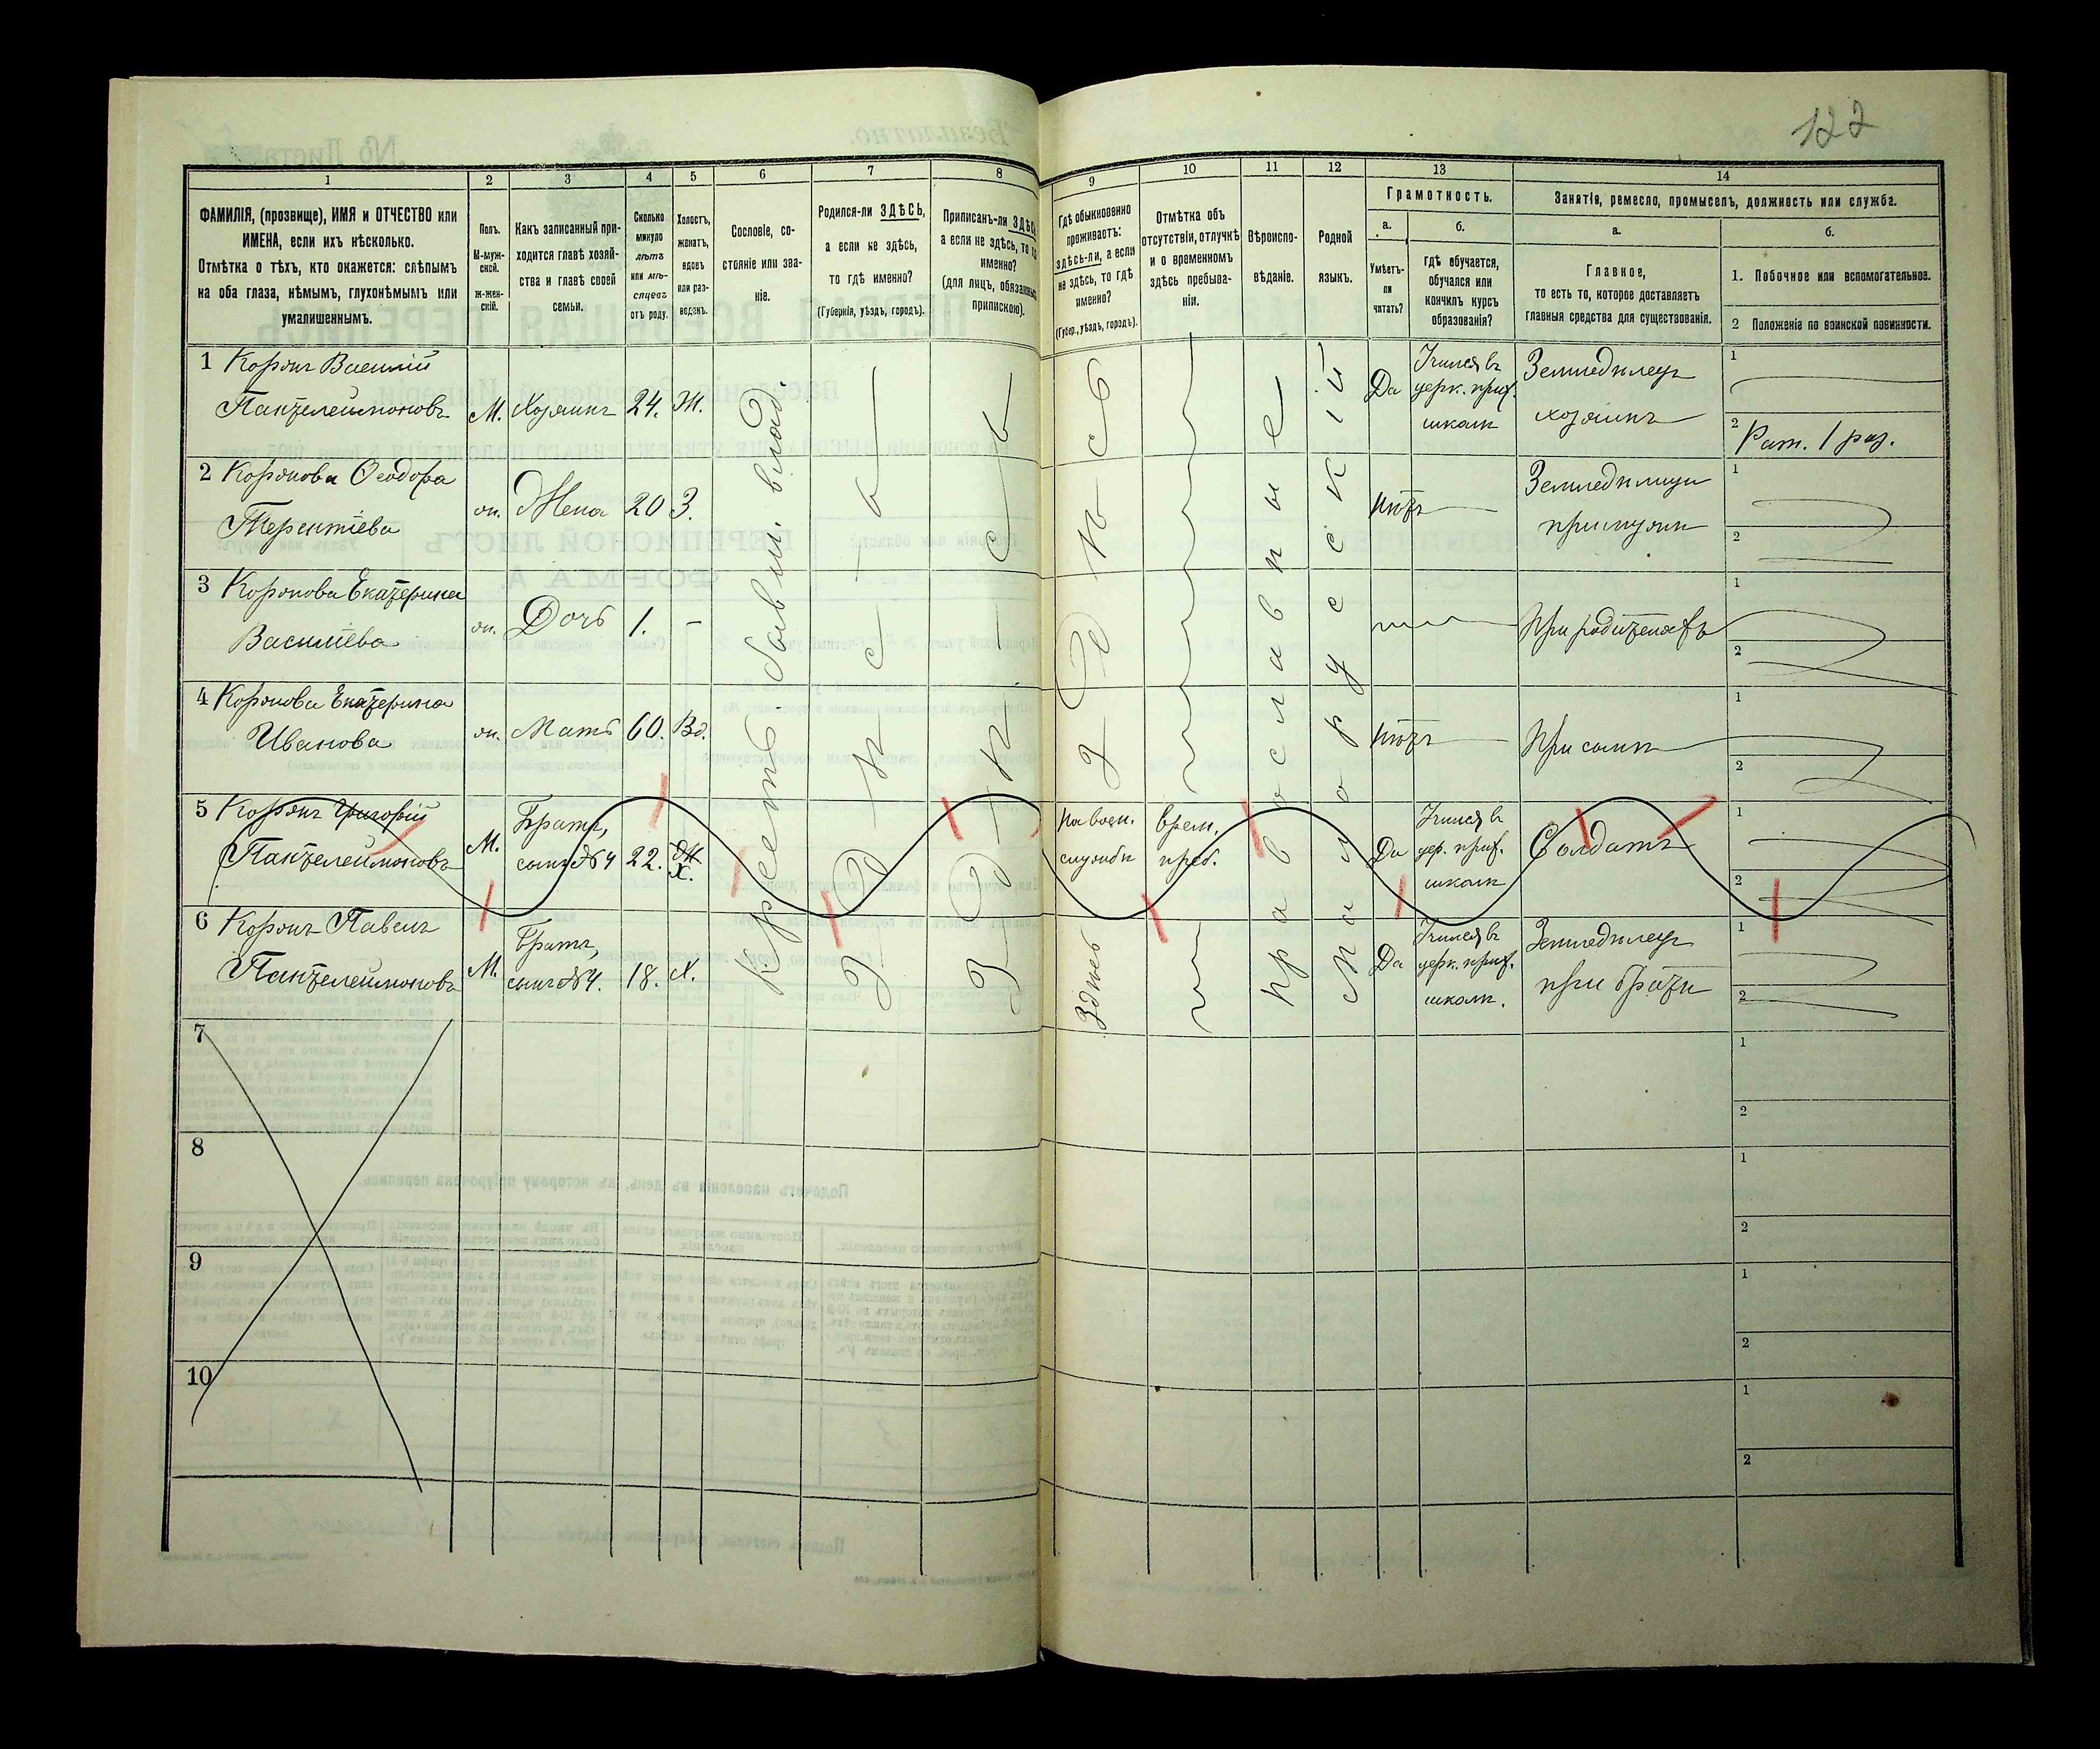 122
1 2 3 4 5 6 7 8 9 10 11 12 13 14
ФАМИЛІЯ, (прозвище), ИМЯ и ОТЧЕСТВО или
ИМЕНА, если ихъ нѣсколько.
Отмѣтка о тѣхъ, кто окажется: слѣпымъ
на оба глаза, нѣмымъ, глухонѣмымъ или
умалишеннымъ.
Полъ.
М-муж-
ской.
Ж-жен-
скій.
Какъ записанный при-
ходится главѣ хозяй-
ства и главѣ своей
семьи.
Сколько
минуло
лѣтъ
или мѣ-
сяцевъ
отъ роду.
Холостъ,
женатъ,
вдовъ
или раз-
веденъ.
Сословіе, со-
стояніе или зва-
ніе.
Родился-ли ЗДѢСЬ,
а если не здѣсь,
то гдѣ именно?
(Губернія, уѣздъ, городъ).
Приписанъ-ли ЗДѢСЬ,
а если не здѣсь, то гдѣ
именно?
(для лицъ, обязанныхъ
припискою).
Гдѣ обыкновенно
проживаетъ:
здѣсь-ли, а если
не здѣсь, то гдѣ
именно?
(Губер., уѣздъ, городъ).
Отмѣтка объ
отсутствіи, отлучкѣ
и о временномъ
здѣсь пребыва-
ніи.
Вѣроиспо-
вѣданіе.
Родной
языкъ.
Грамотность.
а.
Умѣетъ-
ли
читать?
б.
гдѣ обучается,
обучался или
кончилъ курсъ
образованія?
Занятіе, ремесло, промыселъ, должность или служба.
а.
Главное,
то есть то, которое доставляетъ
главныя средства для существованія.
б.
1. Побочное или вспомогательное.
2 Положеніе по воинской повинности.
1 Корянъ Василій
Пантелеймоновъ
М. Хозяинъ 24. Ж.
Крестъ. бывш. влад.
здѣсь
здѣсь
здѣсь
православные
малорусскій
Да
Учился въ
церк. прих.
школѣ
Земледѣлецъ
хозяинъ
1
2 Рат. 1 раз.
2 Корянова Ѳеодора
Терентіева
ж. Жена 20 З.
нѣтъ
Земледѣлица
при мужѣ
1
2
3 Корянова Екатерина
Василіева
ж. Дочь 1. -
При родителяхъ
1
2
4 Корянова Екатерина
Иванова
ж. Мать 60. Вд.
нѣтъ
При сынѣ
1
2
5 Корянъ Григорій
Пантелеймоновъ
М. Братъ,
сынъ №4 22. Ж. Х.
на воен.
службѣ
врем.
преб.
Да
Учился въ
цер. прих.
школѣ
Солдатъ
1
2
6 Корянъ Павелъ
Пантелеймоновъ
М. Братъ,
сынъ №4. 18. Х.
Здѣсь
Да
Учился въ
церк. прих.
школѣ.
Земледѣлецъ
при братѣ
1
2
7
1
2
8
1
2
9
1
2
10
1
2